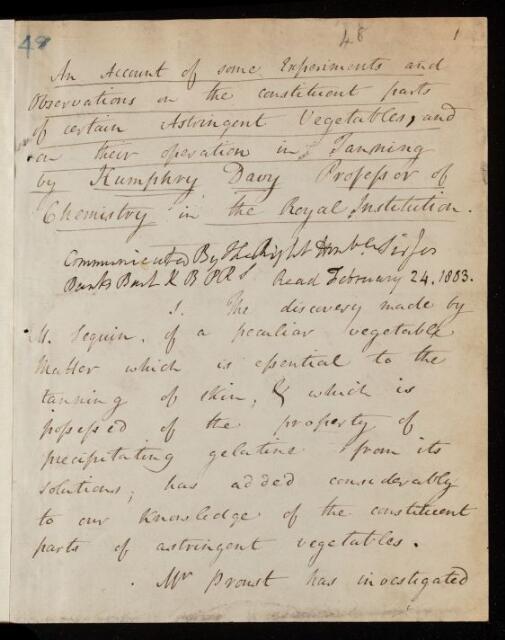 48 48 1
An Account of some Experiments and
Observations on the constituent parts
of certain Astringent Vegetables, and
on their operation in Tanning
by Humphry Davy Professor of
Chemistry in the Royal Institution.
Communicated By The Right Honble Sir Jos
Banks Bart K B P R S Read February 24. 1803.
I. The discovery made by
M. Seguin, of a peculiar vegetable
Matter which is essential to the
tanning of skin, & which is
possessed of the property of
precipitating gelatine from its
solutions, has added considerably
to our Knowledge of the constituent
parts of astringent vegetables.
Mr Proust has investigated